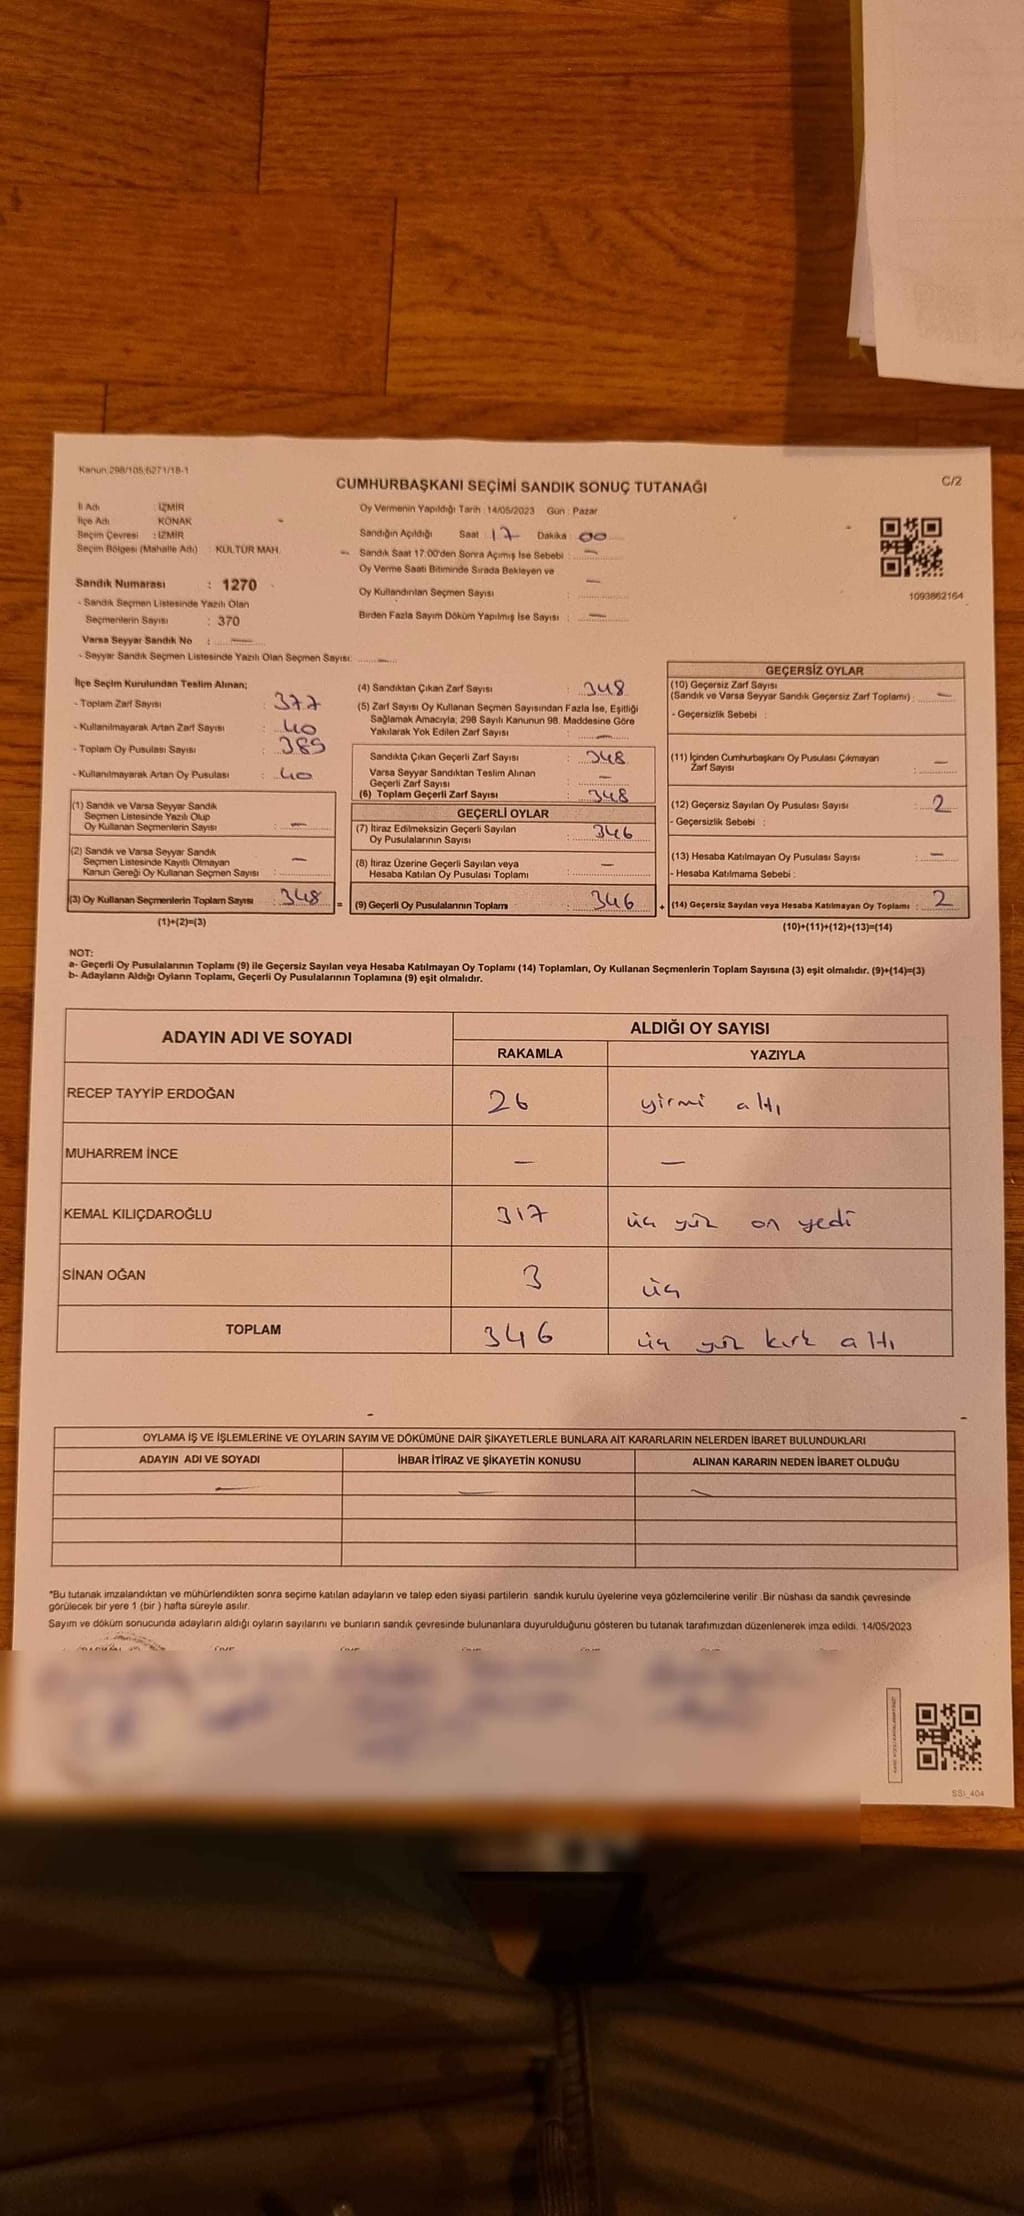 Kanun:298/105,6271/18-1
CUMHURBAŞKANI SEÇİMİ SANDIK SONUÇ TUTANAĞI
C/2
İl Adı : İZMİR
İlçe Adı : KONAK
Seçim Çevresi : İZMİR
Seçim Bölgesi (Mahalle Adı) : KÜLTÜR MAH.
Sandık Numarası : 1270
- Sandık Seçmen Listesinde Yazılı Olan
Seçmenlerin Sayısı : 370
Varsa Seyyar Sandık No : —
- Seyyar Sandık Seçmen Listesinde Yazılı Olan Seçmen Sayısı: —
Oy Vermenin Yapıldığı Tarih : 14/05/2023 Gün : Pazar
Sandığın Açıldığı Saat : 17 Dakika : 00
Sandık Saat 17:00'den Sonra Açımış İse Sebebi : —
Oy Verme Saati Bitiminde Sırada Bekleyen ve
Oy Kullandırılan Seçmen Sayısı : —
Birden Fazla Sayım Döküm Yapılmış İse Sayısı : —
1093862164
İlçe Seçim Kurulundan Teslim Alınan;
- Toplam Zarf Sayısı : 377
- Kullanılmayarak Artan Zarf Sayısı : 40
- Toplam Oy Pusulası Sayısı : 389
- Kullanılmayarak Artan Oy Pusulası : 40
(1) Sandık ve Varsa Seyyar
Seçmen Listesinde Yazılı Olup
Oy Kullanan Seçmenlerin Sayısı : —
(2) Sandık ve Varsa Seyyar Sandık
Seçmen Listesinde Kayıtlı Olmayan
Kanun Gereği Oy Kullanan Seçmen Sayısı : —
(3) Oy Kullanan Seçmenlerin Toplam Sayısı : 348 =
(1)+(2)=(3)
(4) Sandıktan Çıkan Zarf Sayısı : 348
(5) Zarf Sayısı Oy Kullanan Seçmen Sayısından Fazla İse, Eşitliği
Sağlamak Amacıyla; 298 Sayılı Kanunun 98. Maddesine Göre
Yakılarak Yok Edilen Zarf Sayısı : —
Sandıkta Çıkan Geçerli Zarf Sayısı : 348
Varsa Seyyar Sandıktan Teslim Alınan
Geçerli Zarf Sayısı : —
(6) Toplam Geçerli Zarf Sayısı : 348
GEÇERLİ OYLAR
(7) İtiraz Edilmeksizin Geçerli Sayılan
Oy Pusulalarının Sayısı : 346
(8) İtiraz Üzerine Geçerli Sayılan veya
Hesaba Katılan Oy Pusulası Toplamı : —
(9) Geçerli Oy Pusulalarının Toplamı : 346 +
GEÇERSİZ OYLAR
(10) Geçersiz Zarf Sayısı
(Sandık ve Varsa Seyyar Sandık Geçersiz Zarf Toplamı) : —
- Geçersizlik Sebebi :
(11) İçinden Cumhurbaşkanı Oy Pusulası Çıkmayan
Zarf Sayısı : —
(12) Geçersiz Sayılan Oy Pusulası Sayısı : 2
- Geçersizlik Sebebi :
(13) Hesaba Katılmayan Oy Pusulası Sayısı : —
- Hesaba Katılmama Sebebi :
(14) Geçersiz Sayılan veya Hesaba Katılmayan Oy Toplamı : 2
(10)+(11)+(12)+(13)=(14)
NOT:
a- Geçerli Oy Pusulalarının Toplamı (9) ile Geçersiz Sayılan veya Hesaba Katılmayan Oy Toplamı (14) Toplamları, Oy Kullanan Seçmenlerin Toplam Sayısına (3) eşit olmalıdır. (9)+(14)=(3)
b- Adayların Aldığı Oyların Toplamı, Geçerli Oy Pusulalarının Toplamına (9) eşit olmalıdır.
ADAYIN ADI VE SOYADI ALDIĞI OY SAYISI
RAKAMLA YAZIYLA
RECEP TAYYİP ERDOĞAN 26 yirmi altı
MUHARREM İNCE — —
KEMAL KILIÇDAROĞLU 317 üç yüz on yedi
SİNAN OĞAN 3 üç
TOPLAM 346 üç yüz kırk altı
OYLAMA İŞ VE İŞLEMLERİNE VE OYLARIN SAYIM VE DÖKÜMÜNE DAİR ŞİKAYETLERLE BUNLARA AİT KARARLARIN NELERDEN İBARET BULUNDUKLARI
ADAYIN ADI VE SOYADI İHBAR İTİRAZ VE ŞİKAYETİN KONUSU ALINAN KARARIN NEDEN İBARET OLDUĞU
— — —
*Bu tutanak imzalandıktan ve mühürlendikten sonra seçime katılan adayların ve talep eden siyasi partilerin sandık kurulu üyelerine veya gözlemcilerine verilir .Bir nüshası da sandık çevresinde
görülecek bir yere 1 (bir ) hafta süreyle asılır.
Sayım ve döküm sonucunda adayların aldığı oyların sayılarını ve bunların sandık çevresinde bulunanlara duyurulduğunu gösteren bu tutanak tarafımızdan düzenlenerek imza edildi. 14/05/2023
SSI_404